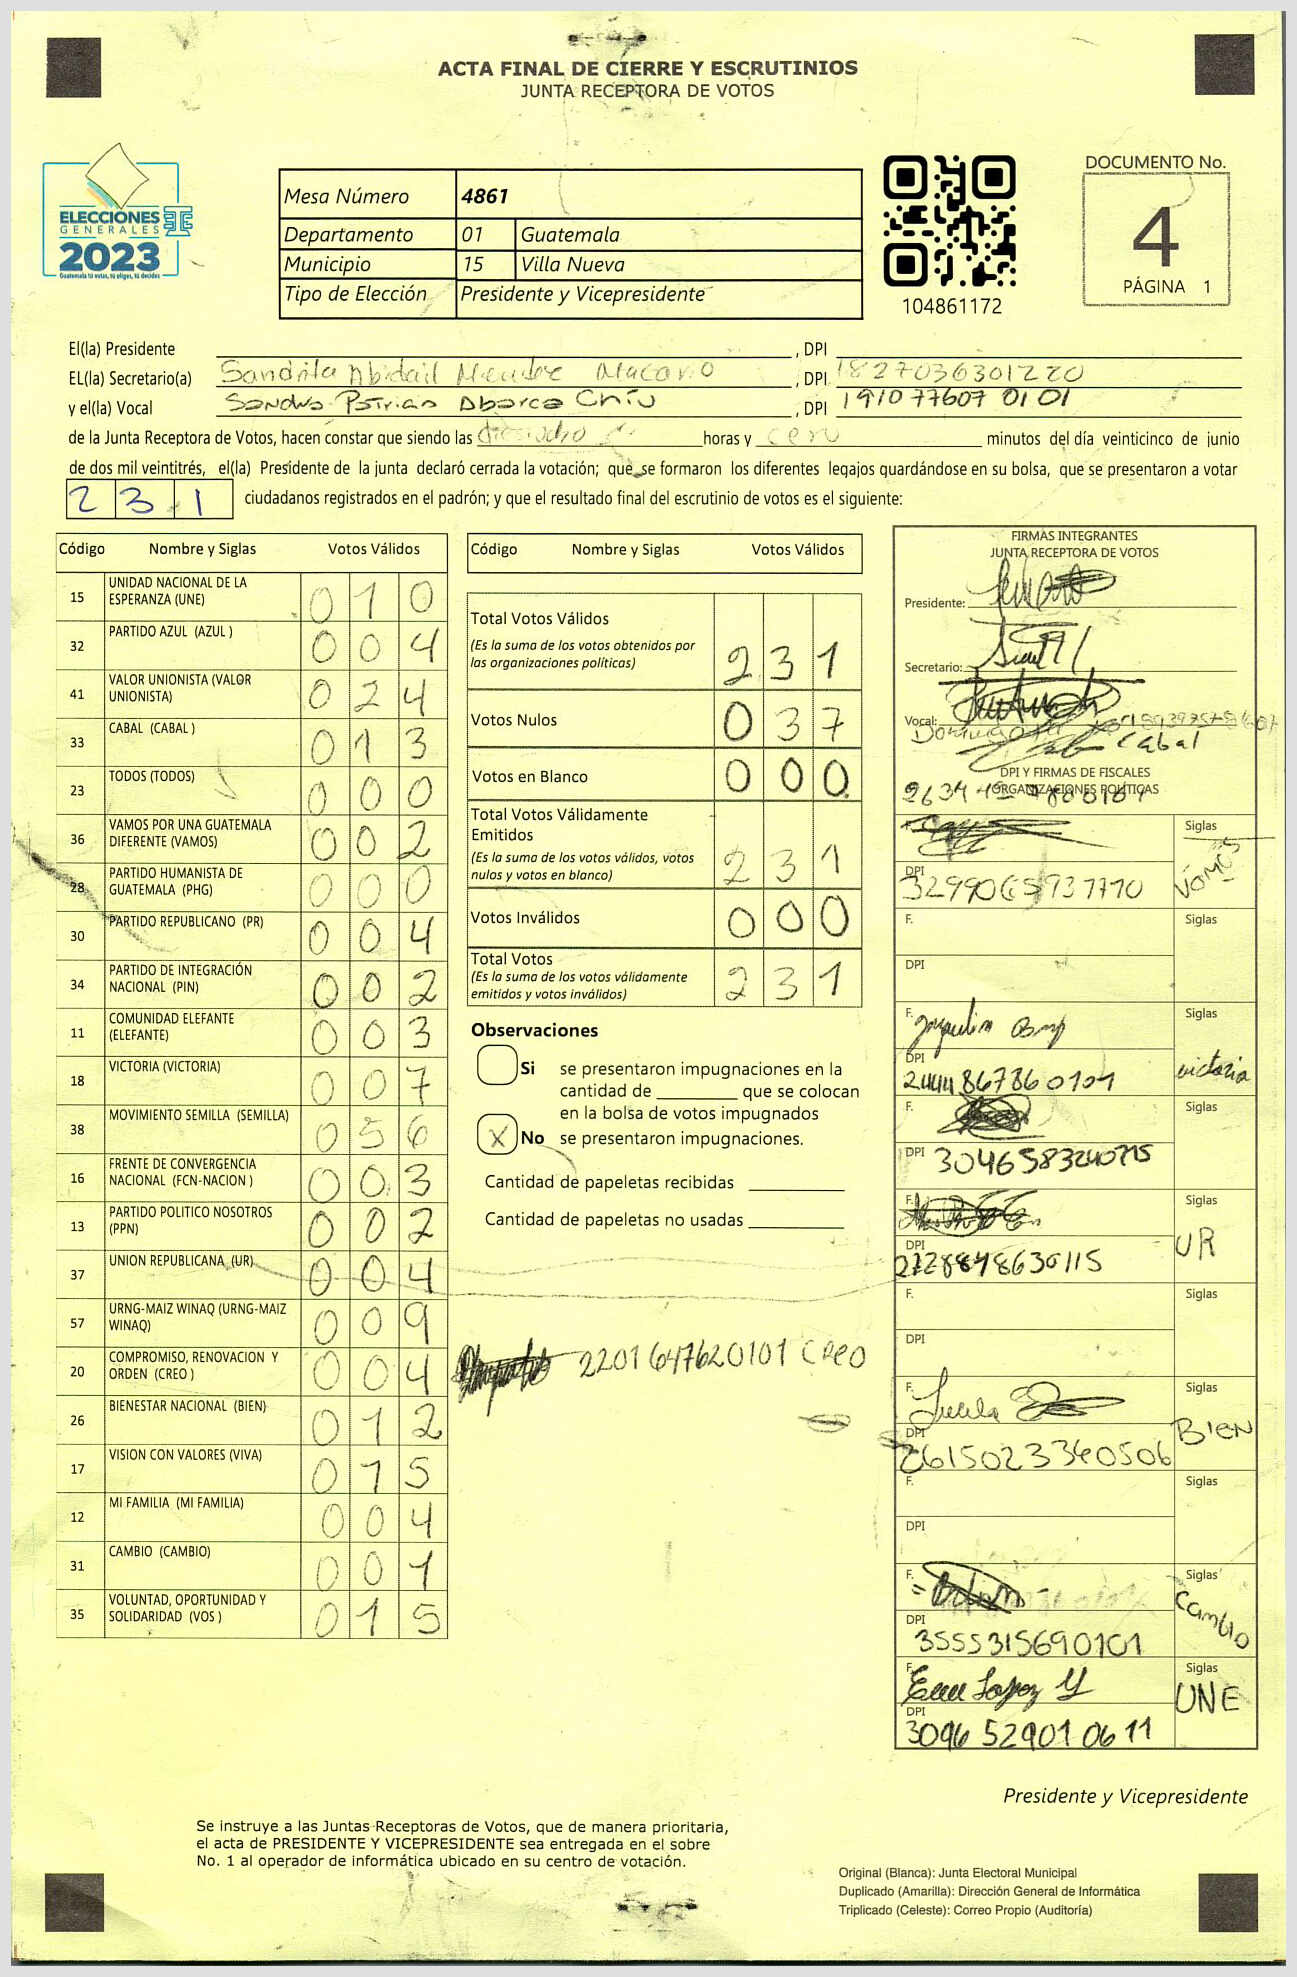 ACTA FINAL DE CIERRE Y ESCRUTINIOS
JUNTA RECEPTORA DE VOTOS
ELECCIONES
GENERALES
2023
Guatemala tú votas, tú eliges, tú decides
Mesa Número 4861
Departamento 01 Guatemala
Municipio 15 Villa Nueva
Tipo de Elección Presidente y Vicepresidente
104861172
DOCUMENTO No.
4
PÁGINA 1
El(la) Presidente , DPI
EL(la) Secretario(a) Abidail Macario , DPI 1827036301220
y el(la) Vocal Sandra Abarca Chiu , DPI 191077607 0101
de la Junta Receptora de Votos, hacen constar que siendo las dieciocho horas y cero minutos del día veinticinco de junio
de dos mil veintitrés, el(la) Presidente de la junta declaró cerrada la votación; que se formaron los diferentes legajos guardándose en su bolsa, que se presentaron a votar
231 ciudadanos registrados en el padrón; y que el resultado final del escrutinio de votos es el siguiente:
Código Nombre y Siglas Votos Válidos
15 UNIDAD NACIONAL DE LA ESPERANZA (UNE) 010
32 PARTIDO AZUL (AZUL ) 004
41 VALOR UNIONISTA (VALOR UNIONISTA) 024
33 CABAL (CABAL ) 013
23 TODOS (TODOS) 000
36 VAMOS POR UNA GUATEMALA DIFERENTE (VAMOS) 002
28 PARTIDO HUMANISTA DE GUATEMALA (PHG) 000
30 PARTIDO REPUBLICANO (PR) 004
34 PARTIDO DE INTEGRACIÓN NACIONAL (PIN) 002
11 COMUNIDAD ELEFANTE (ELEFANTE) 003
18 VICTORIA (VICTORIA) 007
38 MOVIMIENTO SEMILLA (SEMILLA) 056
16 FRENTE DE CONVERGENCIA NACIONAL (FCN-NACION ) 003
13 PARTIDO POLITICO NOSOTROS (PPN) 002
37 UNION REPUBLICANA (UR) 004
57 URNG-MAIZ WINAQ (URNG-MAIZ WINAQ) 009
20 COMPROMISO, RENOVACION Y ORDEN (CREO ) 004
26 BIENESTAR NACIONAL (BIEN) 012
17 VISION CON VALORES (VIVA) 015
12 MI FAMILIA (MI FAMILIA) 004
31 CAMBIO (CAMBIO) 001
35 VOLUNTAD, OPORTUNIDAD Y SOLIDARIDAD (VOS ) 015
Código Nombre y Siglas Votos Válidos
Total Votos Válidos 231
(Es la suma de los votos obtenidos por
las organizaciones políticas)
Votos Nulos 037
Votos en Blanco 000
Total Votos Válidamente
Emitidos 231
(Es la suma de los votos válidos, votos
nulos y votos en blanco)
Votos Inválidos 000
Total Votos 231
(Es la suma de los votos válidamente
emitidos y votos inválidos)
Observaciones
Si se presentaron impugnaciones en la
cantidad de ________ que se colocan
en la bolsa de votos impugnados
X No se presentaron impugnaciones.
Cantidad de papeletas recibidas
Cantidad de papeletas no usadas
2201647620101 CREO
FIRMAS INTEGRANTES
JUNTA RECEPTORA DE VOTOS
Presidente:
Secretario:
Vocal:
Cabal
DPI Y FIRMAS DE FISCALES
ORGANIZACIONES POLÍTICAS
Siglas
VAMOS
DPI
F. Siglas
DPI
F. Siglas
DPI 2444867860101 victoria
F. Siglas
DPI 3046583240715
F. Siglas
DPI UR
F. Siglas
DPI
F. Siglas
DPI 2615023340506 BIEN
F. Siglas
DPI
F. Siglas
DPI 3555315690101 Cambio
F. Siglas
DPI 3096 52901 0611 UNE
Presidente y Vicepresidente
Se instruye a las Juntas Receptoras de Votos, que de manera prioritaria,
el acta de PRESIDENTE Y VICEPRESIDENTE sea entregada en el sobre
No. 1 al operador de informática ubicado en su centro de votación.
Original (Blanca): Junta Electoral Municipal
Duplicado (Amarilla): Dirección General de Informática
Triplicado (Celeste): Correo Propio (Auditoría)